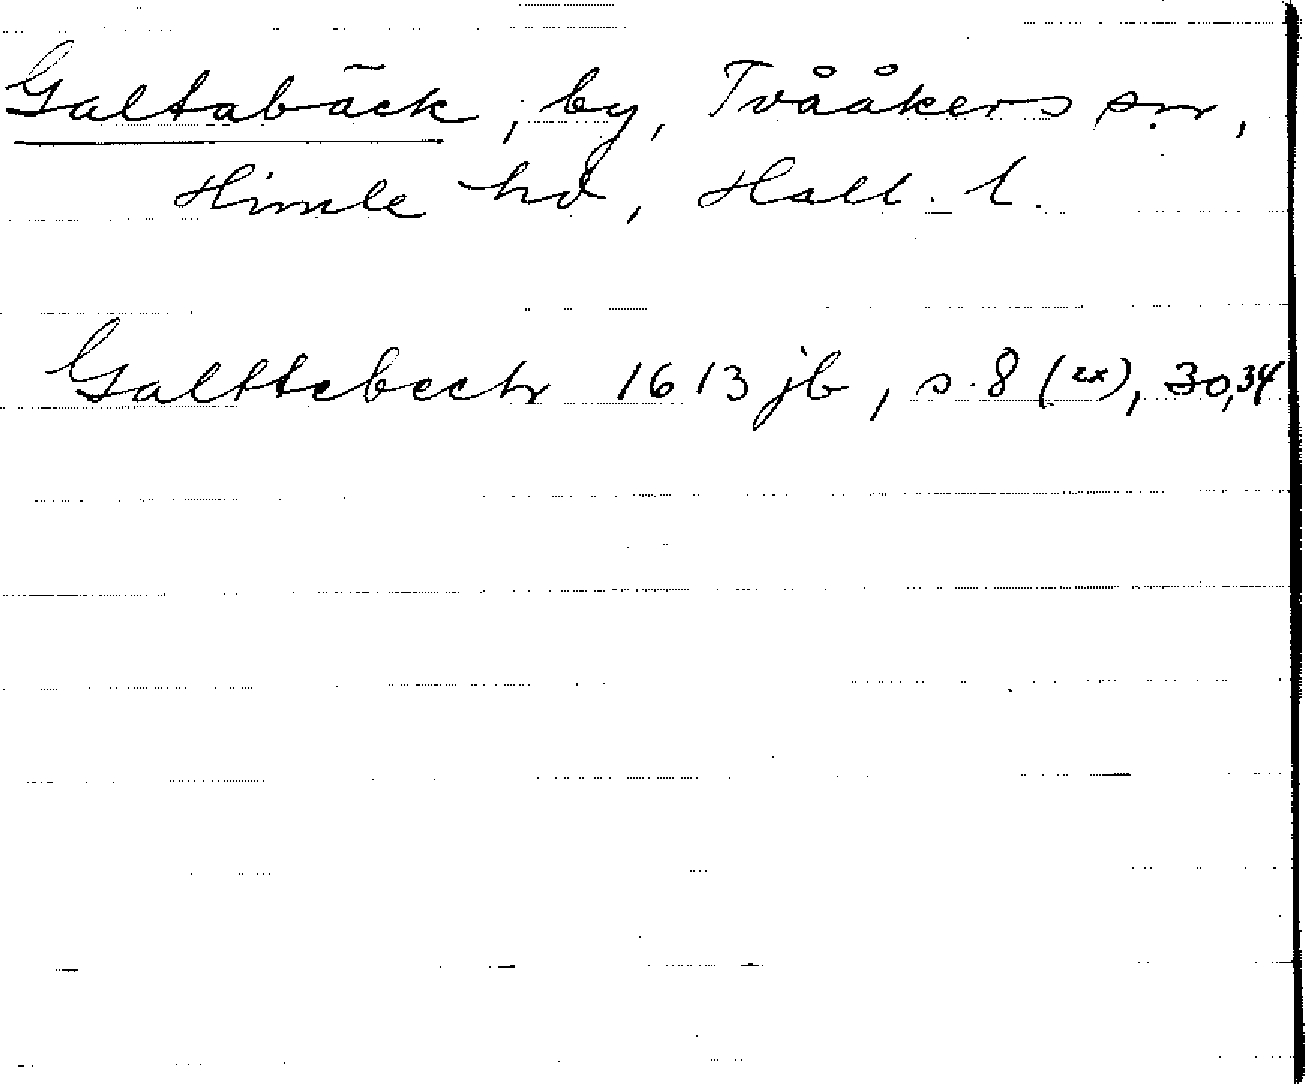 Galtabäck, by, Tvååkers sn,
Himle hd, Hall. l.
Galttebeck 1613 jb, s. 8 (2x), 30, 34